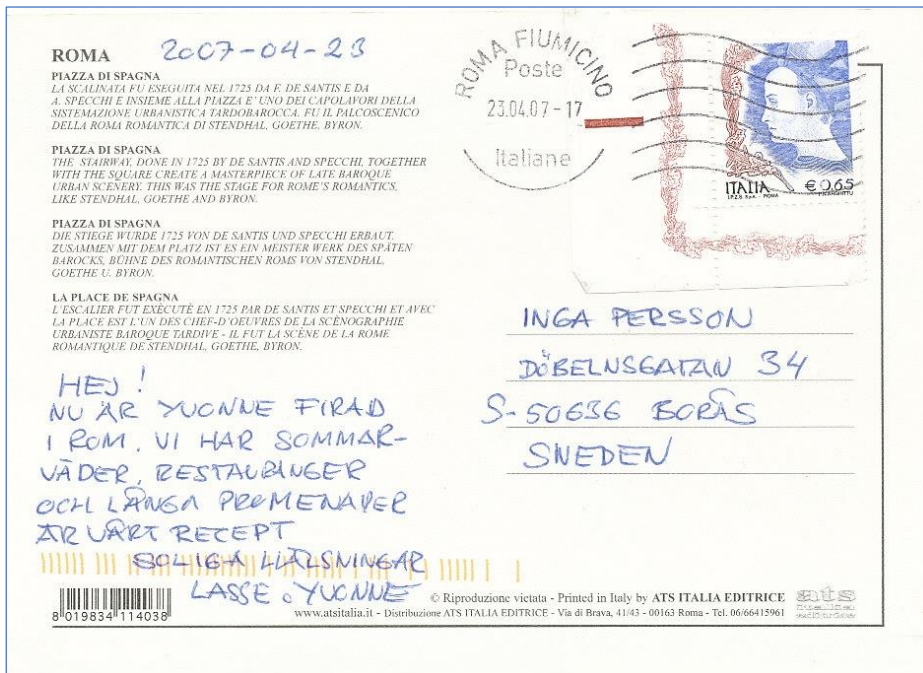 ROMA 2007-04-23
PIAZZA DI SPAGNA
LA SCALINATA FU ESEGUITA NEL 1725 DA F. DE SANTIS E DA
A. SPECCHI E INSIEME ALLA PIAZZA E' UNO DEI CAPOLAVORI DELLA
SISTEMAZIONE URBANISTICA TARDOBAROCCA. FU IL PALCOSCENICO
DELLA ROMA ROMANTICA DI STENDHAL, GOETHE, BYRON.
PIAZZA DI SPAGNA
THE STAIRWAY, DONE IN 1725 BY DE SANTIS AND SPECCHI, TOGETHER
WITH THE SQUARE CREATE A MASTERPIECE OF LATE BAROQUE
URBAN SCENERY. THIS WAS THE STAGE FOR ROME'S ROMANTICS,
LIKE STENDHAL, GOETHE AND BYRON.
PIAZZA DI SPAGNA
DIE STIEGE WURDE 1725 VON DE SANTIS UND SPECCHI ERBAUT,
ZUSAMMEN MIT DEM PLATZ IST ES EIN MEISTER WERK DES SPÄTEN
BAROCKS, BÜHNE DES ROMANTISCHEN ROMS VON STENDHAL,
GOETHE U. BYRON.
LA PLACE DE SPAGNA
L'ESCALIER FUT EXÈCUTÈ EN 1725 PAR DE SANTIS ET SPECCHI ET AVEC
LA PLACE EST L'UN DES CHEF-D'OEUVRES DE LA SCÈNOGRAPHIE
URBANISTE BAROQUE TARDIVE - IL FUT LA SCÈNE DE LA ROME
ROMANTIQUE DE STENDHAL, GOETHE, BYRON.
HEJ!
NU ÄR YVONNE FIRAD
I ROM. VI HAR SOMMAR-
VÄDER, RESTAURANGER
OCH LÅNGA PROMENADER
ÄR VÅRT RECEPT
SOLIGA HÄLSNINGAR
LASSE o YVONNE
ROMA FIUMICINO
Poste
23.04.07-17
Italiane
ITALIA €0,65
I.P.Z.S. S.p.A. - ROMA
INGA PERSSON
DÖBELNSGATAN 34
S-50636 BORÅS
SWEDEN
8 019834 114038
© Riproduzione vietata - Printed in Italy by ATS ITALIA EDITRICE
www.atsitalia.it - Distribuzione ATS ITALIA EDITRICE - Via di Brava, 41/43 - 00163 Roma - Tel. 06/66415961
ats